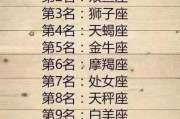 第3名：狮子座
第4名：天蝎座
第5名：金牛座
第6名：摩羯座
第7名：处女座
第8名：天秤座
第9名：白羊座